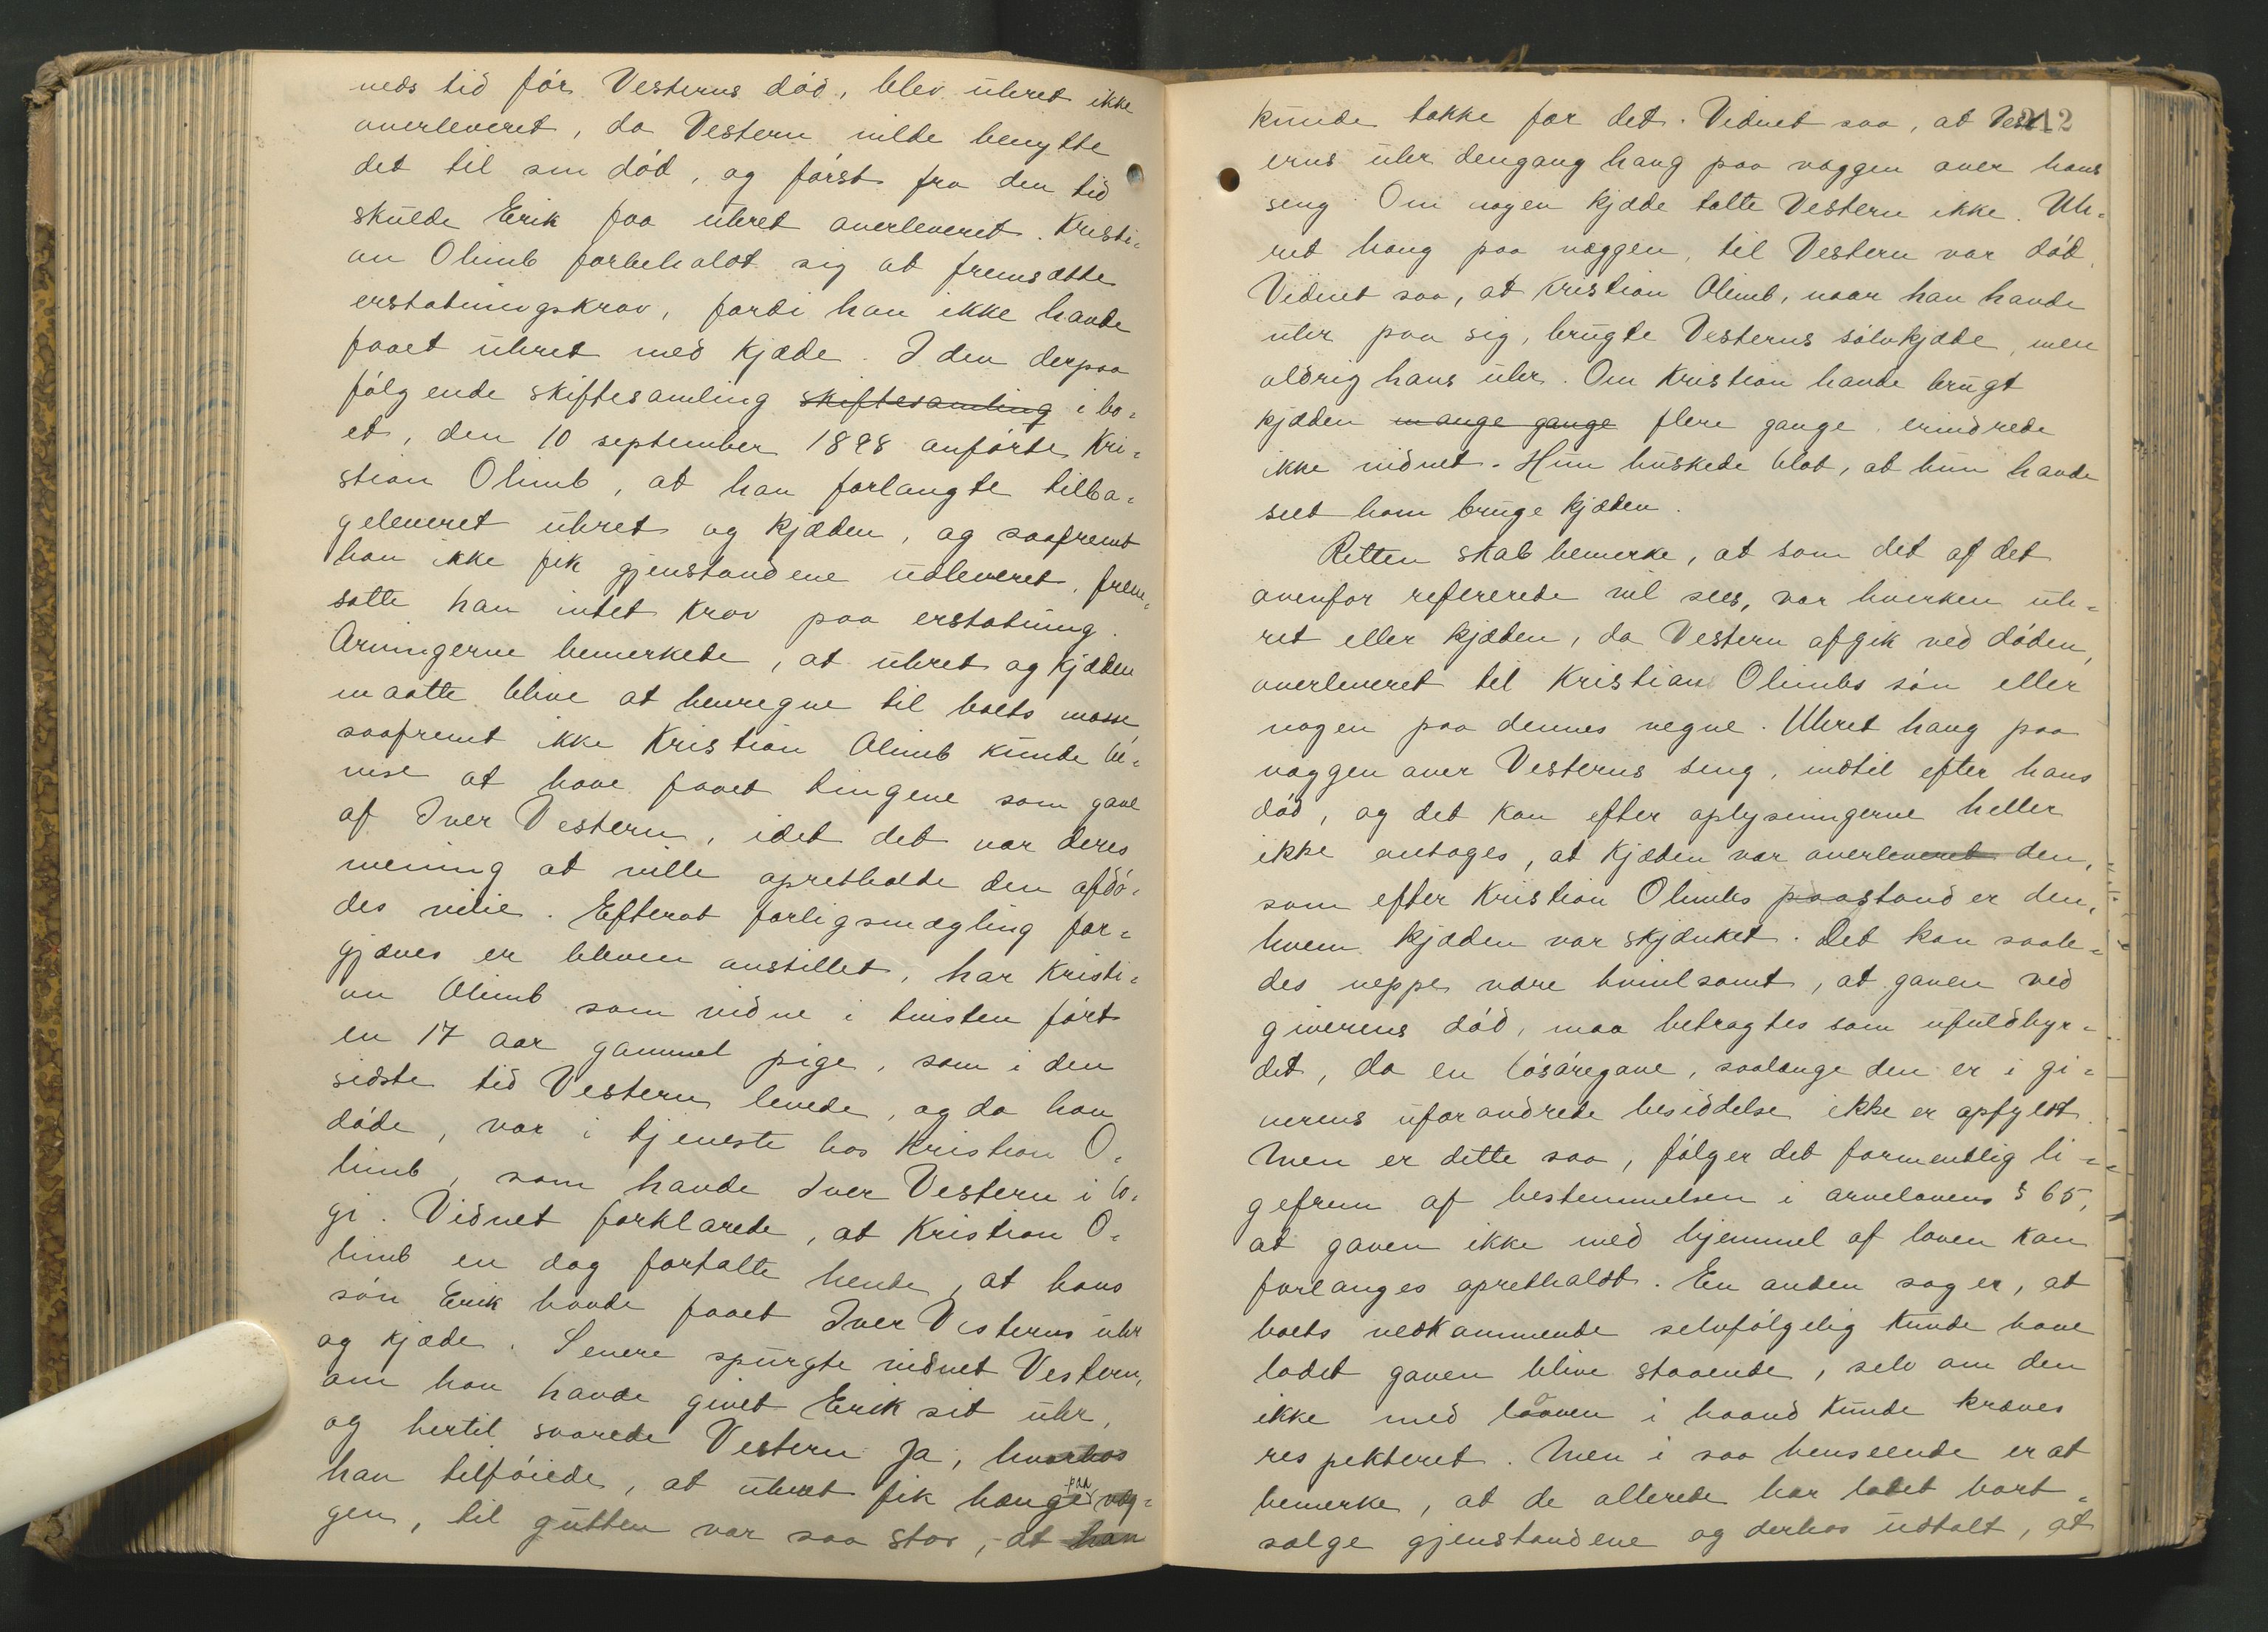 neds tid før Vesterns død, blev uhret ikke
overleveret, da Vestern vilde benytte
det til sin død, og først fra den tid
skulde Erik faa uhret overleveret. Kristi=
an Olimb forbeholdt sig at fremsætte
erstatningskrav, fordi han ikke havde
faaet uhret med kjæde. I den derpaa
følgende skiftesamling skiftesamling i bo=
et, den 10 september 1898 anførte Kri=
stian Olimb, at han forlangte tilba=
geleveret uhret og kjæden, og saafremt
han ikke fik gjenstandene udleveret, frem=
satte han intet krav paa erstatning.
Arvingerne bemerkede, at uhret og kjæden
maatte blive at henregne til boets masse,
saafremt ikke Kristian Olimb kunde be=
vise at have faaet tingene som gave
af Iver Vestern, idet det var deres
mening at ville opretholde den afdø=
des vilie. Efterat forligsmægling for=
gjæves er bleven anstillet, har Kristi=
an Olimb som vidne i tvisten ført
en 17 aar gammel pige, som i den
sidste tid Vestern levede, og da han
døde, var i tjeneste hos Kristian O=
limb, som havde Iver Vestern i lo=
gi. Vidnet forklarede, at Kristian O=
limb en dag fortalte hende, at hans
søn Erik havde faaet Iver Vesterns uhr
og kjæde. Senere spurgte vidnet Vestern,
om han havde givet Erik sit uhr,
og hertil svarede Vestern ja, hvorhos
han tilføiede, at uhret fik hænge paa væg=
gen, til gutten var saa stor, at han
212
kunde takke for det. Vidnet saa, at Vest
erns uhr dengang hang paa væggen over hans
seng. Om nogen kjæde talte Vestern ikke. Uh=
ret hang paa væggen, til Vestern var død.
Vidnet saa, at Kristian Olimb, naar han havde
uhr paa sig, brugte Vesterns sølvkjæde, men
aldrig hans uhr. Om Kristian havde brugt
kjæden mange gange flere gange erindrede
ikke vidnet. Hun huskede blot, at hun havde
seet ham bruge kjæden.
Retten skal bemerke, at som det af det
ovenfor refererede vil sees, var hverken uh=
ret eller kjæden, da Vestern afgik ved døden,
overleveret til Kristian Olimbs søn eller
nogen paa dennes vegne. Uhret hang paa
væggen over Vesterns seng, indtil efter hans
død, og det kan efter oplysningerne heller
ikke antages, at kjæden var overleveret den,
som efter Kristian Olimbs paastand er den,
hvem kjæden var skjænket. Det kan saale=
des neppe være tvivlsomt, at gaven ved
giverens død, maa betragtes som ufuldbyr=
det, da en løsøregave, saalænge den er i gi=
verens uforandrede besiddelse ikke er opfyldt.
Men er dette saa, følger det formentlig li=
gefrem af bestemmelsen i arvelovens § 65,
at gaven ikke med hjemmel af loven kan
forlanges opretholdt. En anden sag er, at
boets vedkommende selvfølgelig kunde have
ladet gaven blive staaende, selv om den
ikke med loven i haand kunde kræves
respekteret. Men i saa henseende er at
bemerke, at de allerede har ladet bort=
sælge gjenstandene og derhos udtalt, at